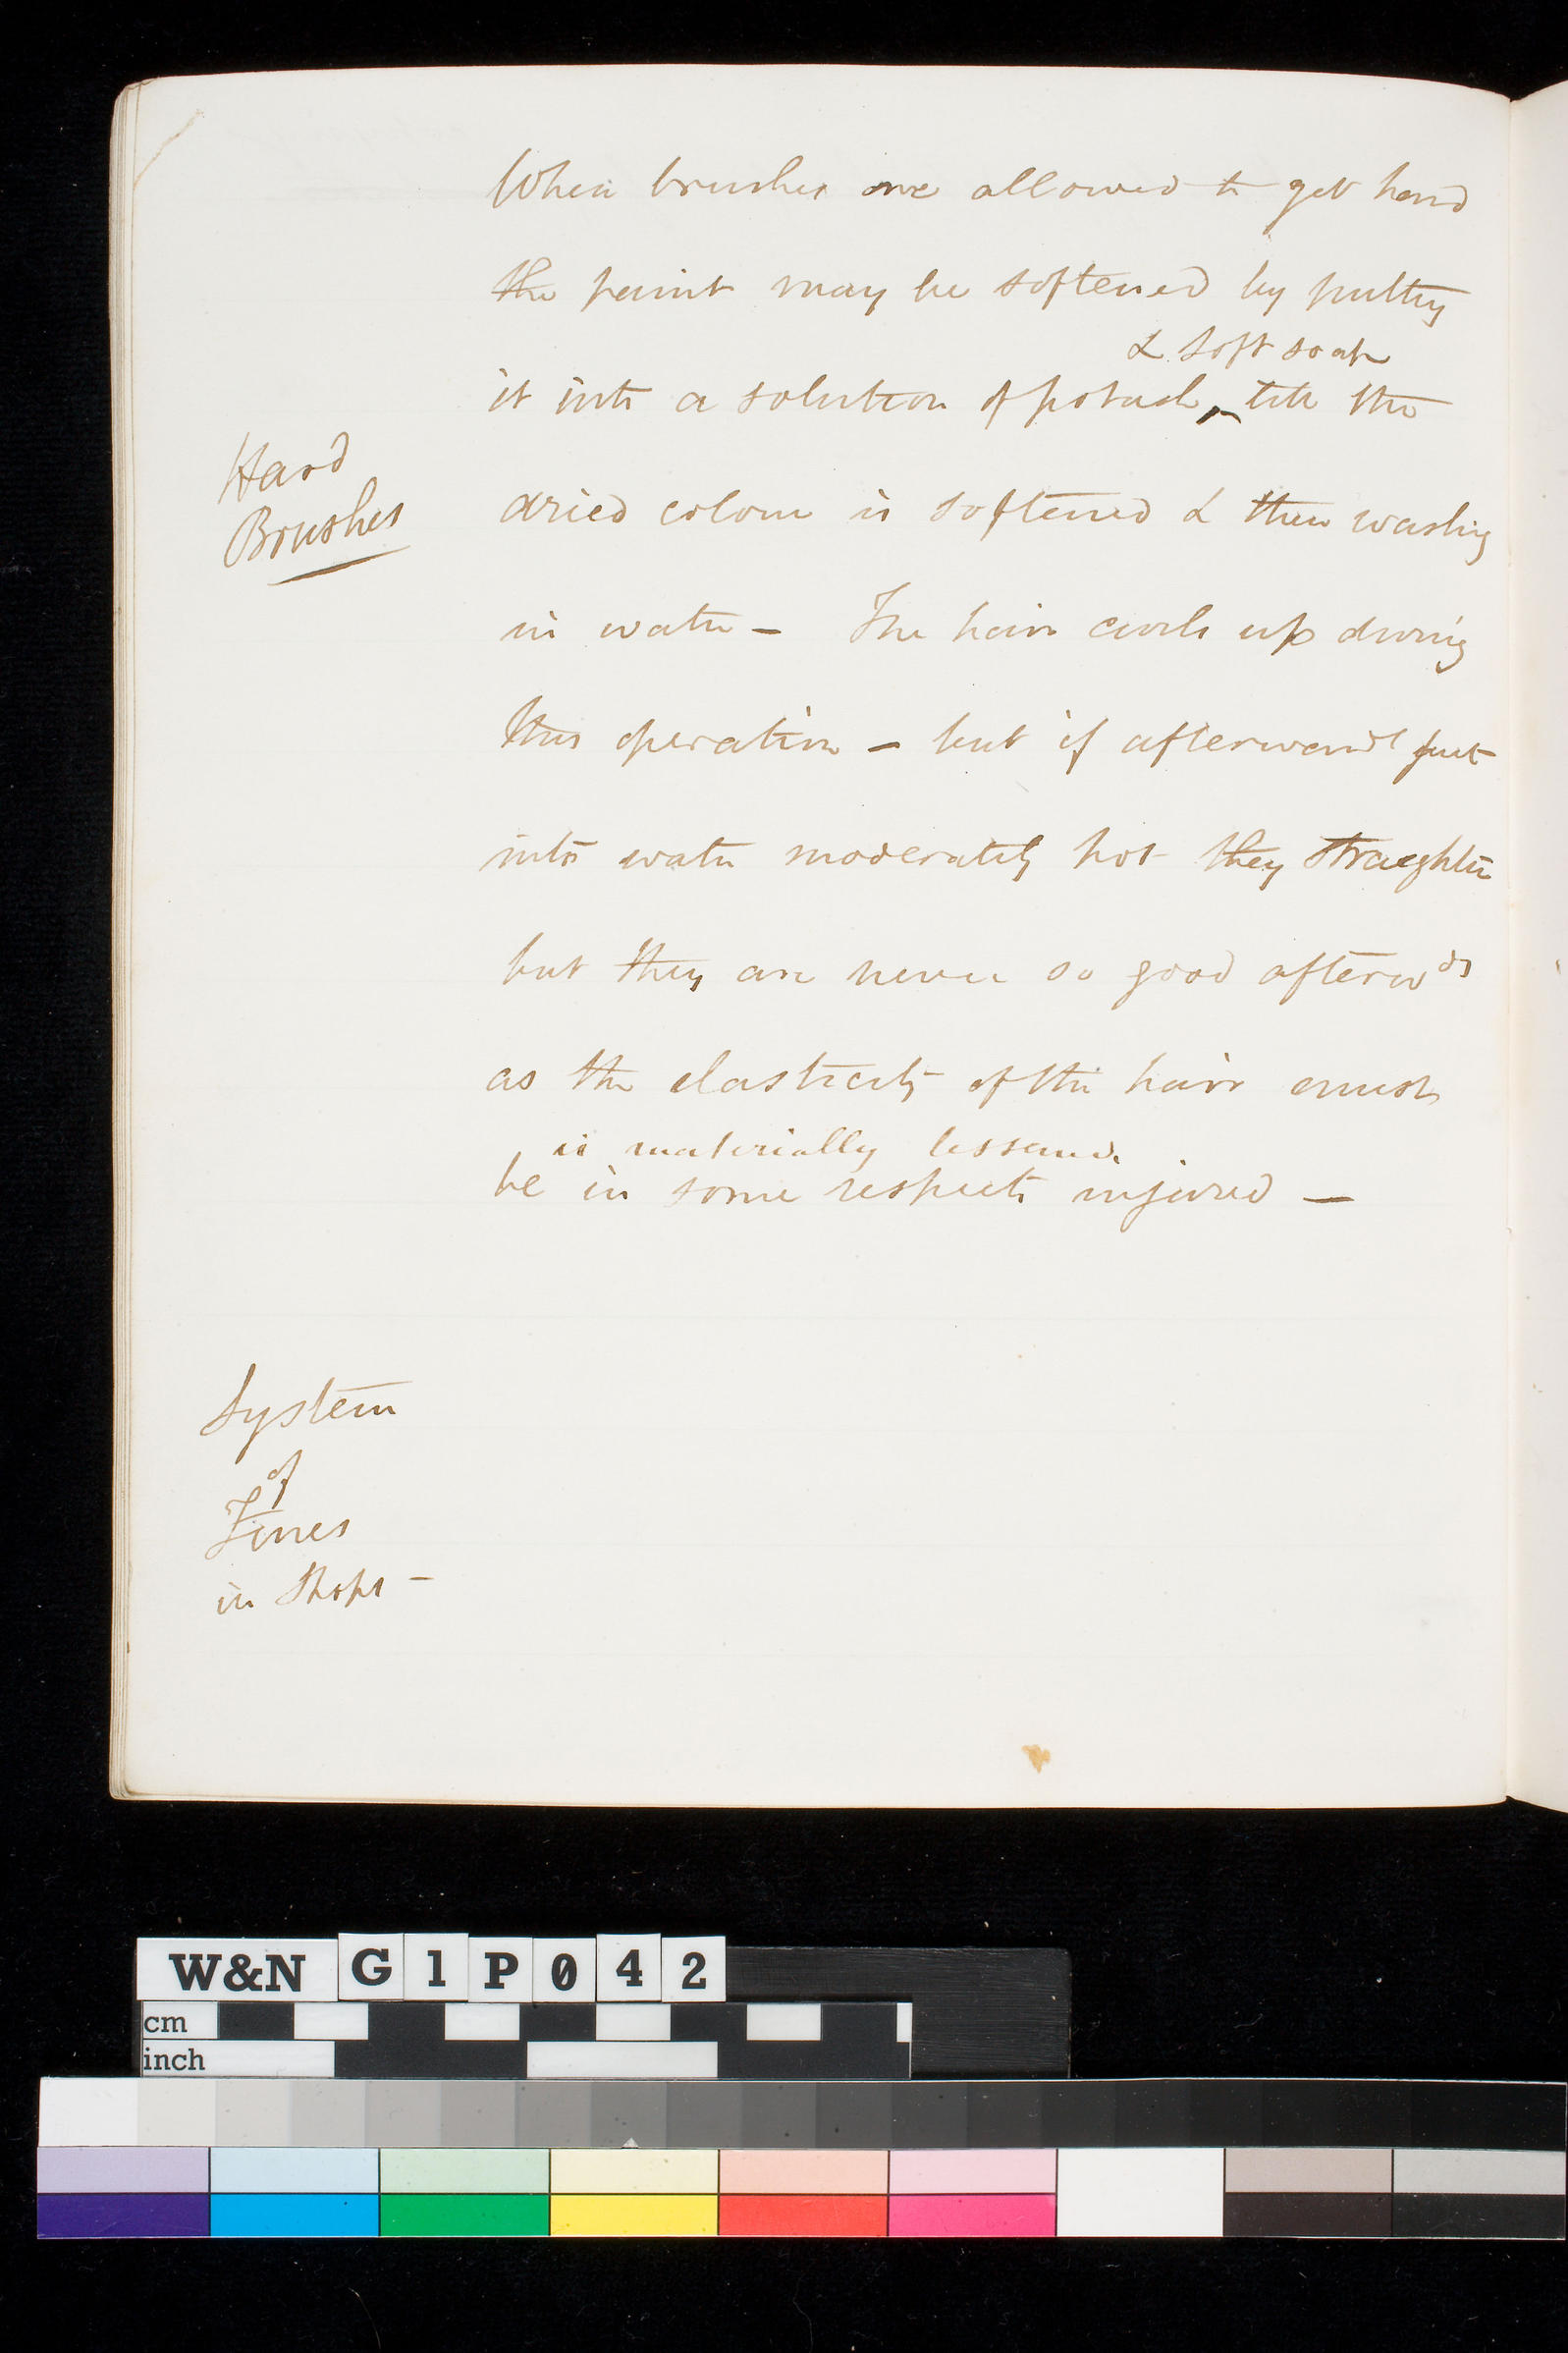 When brushes are allowed to get hard
the paint may be softened by putting
& soft soap
it into a solution of potash ^ till the
Hard
Brushes
dried colour is softened & then washing
in water – The hair curls up during
this operation – but if afterwards put
into water moderately hot they straighten
but they are never so good afterwds
as the elasticity of the hair must
is materially lessened.
be in some respects injured –
System
of
Fines
in Shops –
W&N G1P042
cm
inch